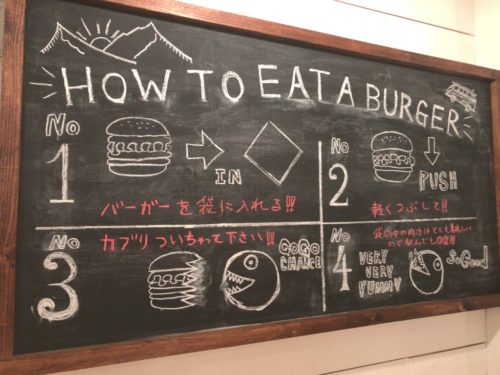 HOW TO EAT A BURGER
No 1
IN
バーガーを袋に入れる!!
No 2
PUSH
軽くつぶして!!
No 3
カブリついちゃって下さい!!
GOGO
CHANCE
No 4
袋の中の肉汁はとても美味しい
ので飲んでも
VERY
VERY
YUMMY
So Good